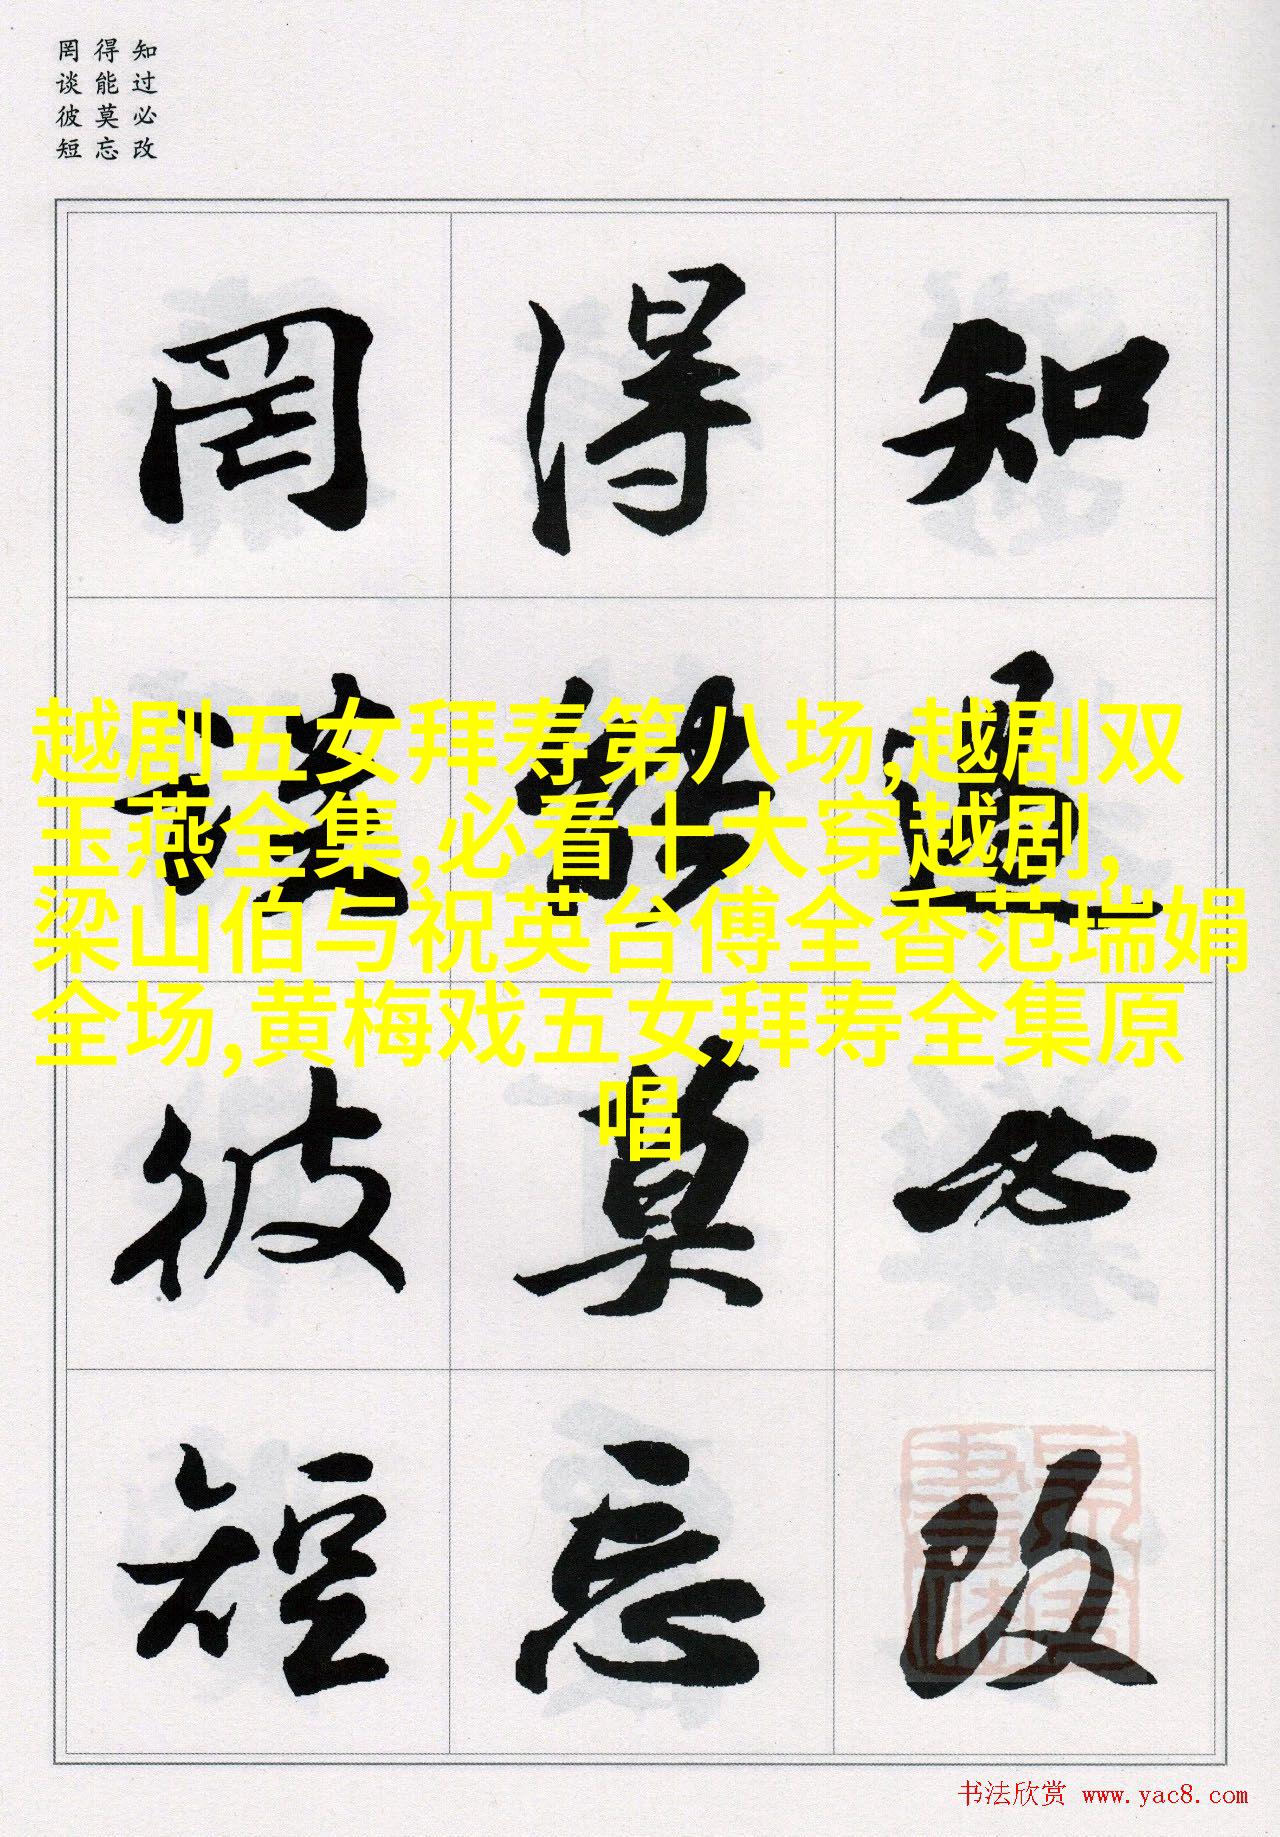 知过必改
得能莫忘
罔谈彼短
知过必改
得能莫忘
罔谈彼短
越剧五女拜寿第八场,越剧双
玉燕全集,必看十大穿越剧,
梁山伯与祝英台傅全香范瑞娟
全场,黄梅戏五女拜寿全集原
唱
书法欣赏 www.yac8.com